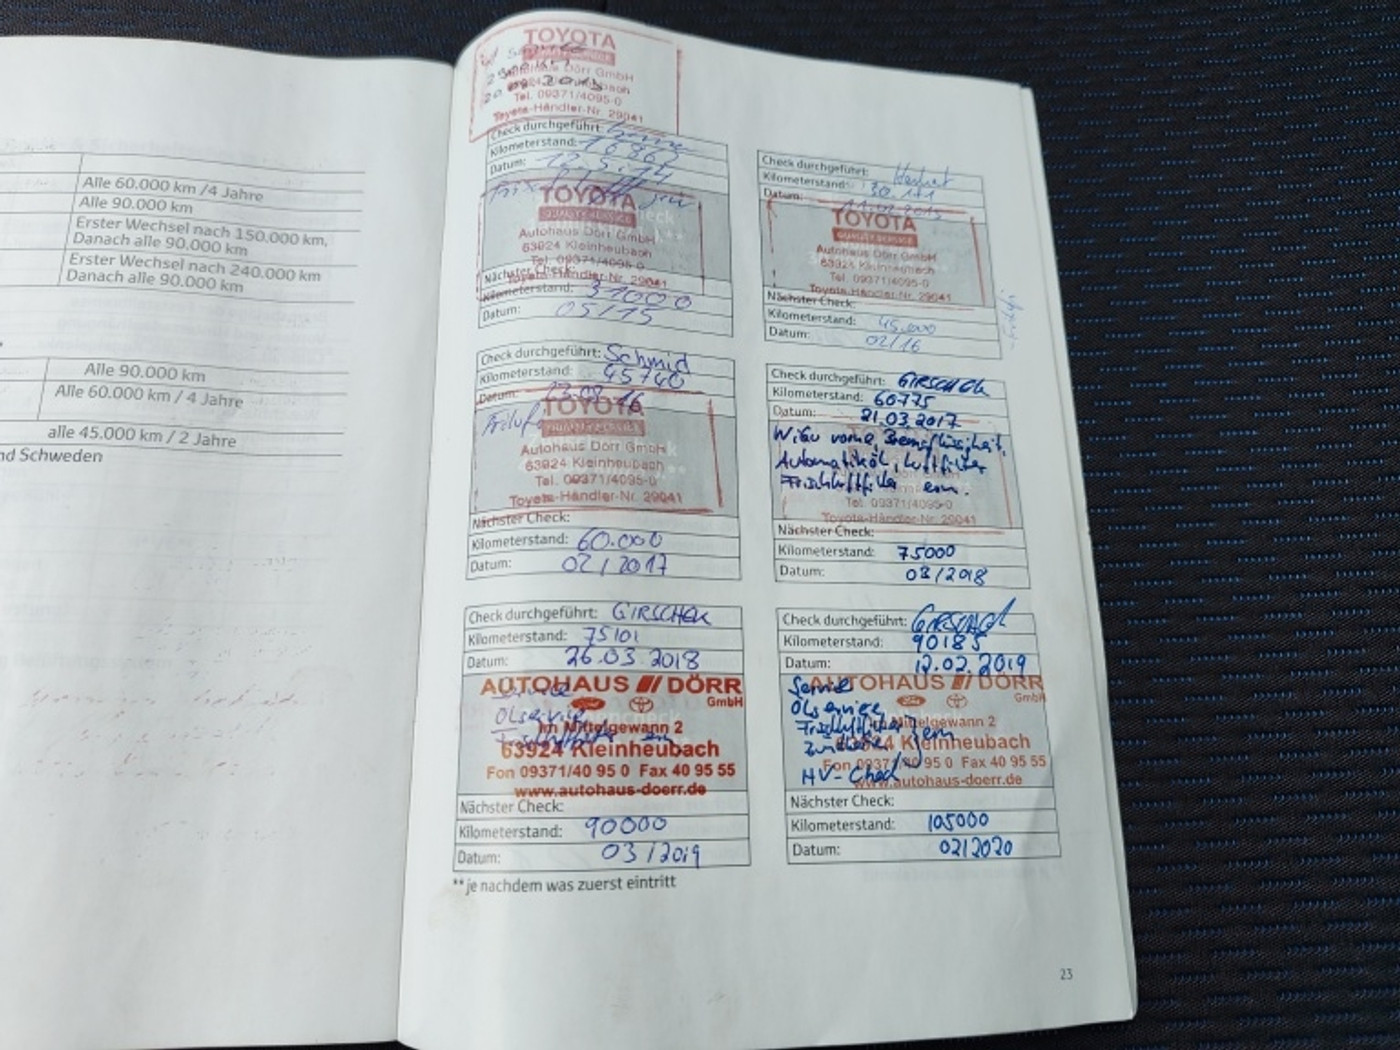 Alle 60.000 km /4 Jahre
Alle 90.000 km
Erster Wechsel nach 150.000 km,
Danach alle 90.000 km
Erster Wechsel nach 240.000 km
Danach alle 90.000 km
Alle 90.000 km
Alle 60.000 km / 4 Jahre
alle 45.000 km / 2 Jahre
nd Schweden
TOYOTA
Autohaus Dörr GmbH
Tel. 09371/4095-0
Toyota-Händler-Nr. 29041
Check durchgeführt:
Kilometerstand:
Datum: 12.5.14
TOYOTA
QUALITY SERVICE
Autohaus Dörr GmbH
63924 Kleinheubach
Tel. 09371/4095-0
Toyota-Händler-Nr. 29041
Nächster Check:
Kilometerstand: 31000
Datum: 05/15
Check durchgeführt:
Kilometerstand: 30.171
Datum: 11.02.2015
TOYOTA
QUALITY SERVICE
Autohaus Dörr GmbH
63924 Kleinheubach
Tel. 09371/4095-0
Toyota-Händler-Nr. 29041
Nächster Check:
Kilometerstand: 45.000
Datum: 02/16
Check durchgeführt: Schmid
Kilometerstand: 45740
Datum: 16
TOYOTA
QUALITY SERVICE
Autohaus Dörr GmbH
63924 Kleinheubach
Tel. 09371/4095-0
Toyota-Händler-Nr. 29041
Nächster Check:
Kilometerstand: 60.000
Datum: 02/2017
Check durchgeführt: GIRSCHEK
Kilometerstand: 60775
Datum: 21.03.2017
WiBu vorne, Bremsflüssigkeit,
Automatiköl, Luftfilter
Frischluftfilter ern.
Tel. 09371/4095-0
Toyota-Händler-Nr. 29041
Nächster Check:
Kilometerstand: 75000
Datum: 03/2018
Check durchgeführt: GIRSCHEK
Kilometerstand: 75101
Datum: 26.03.2018
AUTOHAUS DÖRR
GmbH
Ölservice
Im Mittelgewann 2
Frischluftfilter ern
63924 Kleinheubach
Fon 09371/40 95 0 Fax 40 95 55
www.autohaus-doerr.de
Nächster Check:
Kilometerstand: 90000
Datum: 03/2019
Check durchgeführt: GIRSCHEK
Kilometerstand: 90185
Datum: 12.02.2019
Service
AUTOHAUS DÖRR
GmbH
Ölservice
Im Mittelgewann 2
Frischluftfilter
ern
63924 Kleinheubach
Fon 09371/40 95 0 Fax 40 95 55
HV-Check
www.autohaus-doerr.de
Nächster Check:
Kilometerstand: 105000
Datum: 02/2020
**je nachdem was zuerst eintritt
23